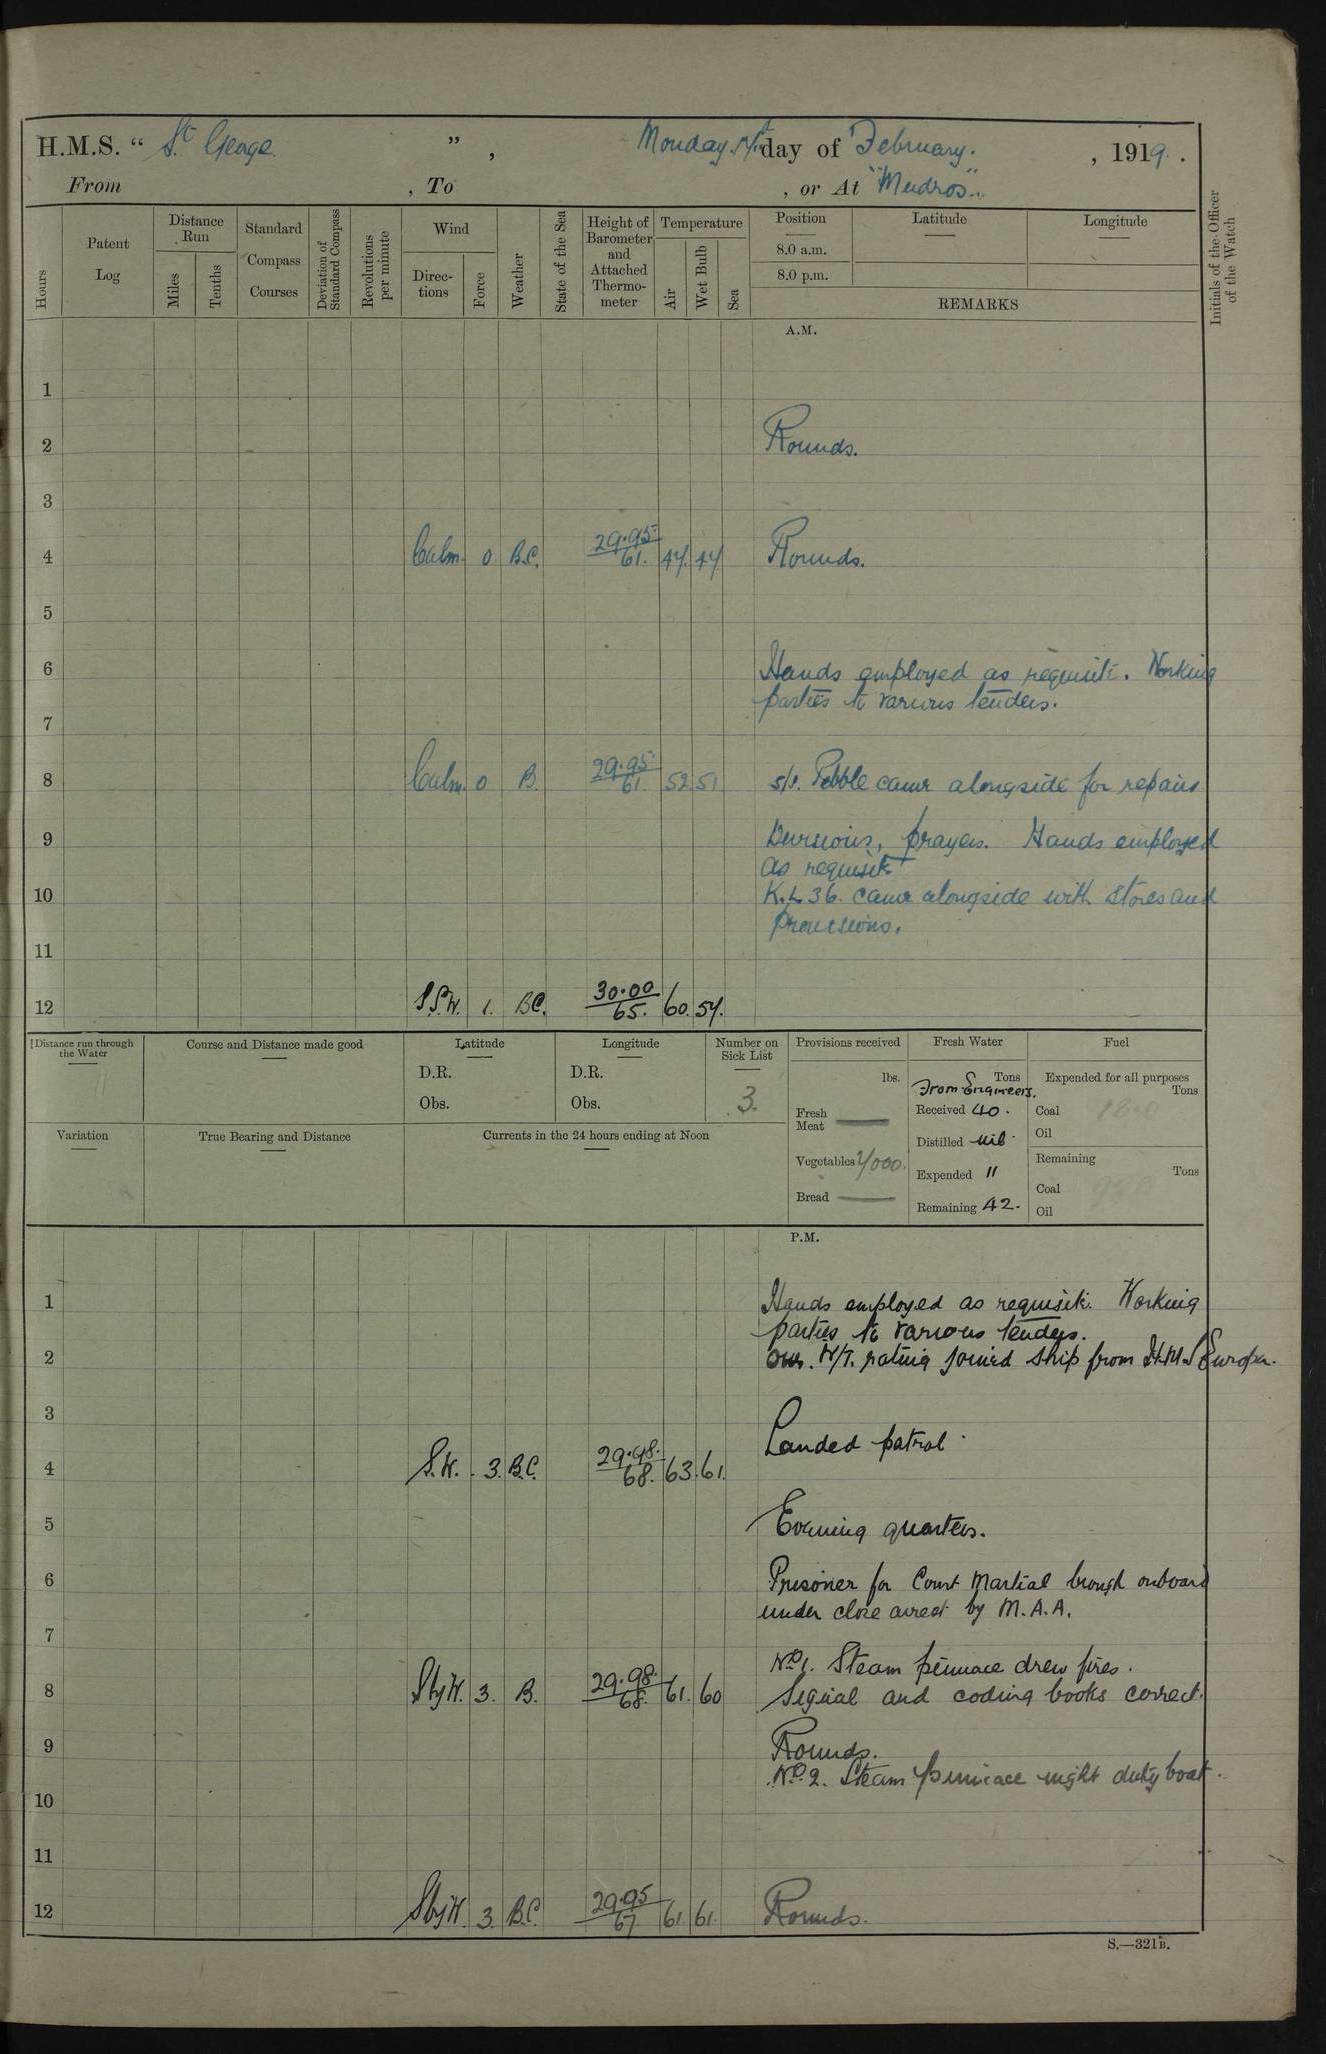 H.M.S. “ St. George ” , Monday 17th day of February. , 1919 .
From , To , or At "Mudros".
Hours
Patent Log
Distance Run
Miles
Tenths
Standard Compass Courses
Deviation of Standard Compass
Revolutions per minute
Wind
Directions
Force
Weather
State of the Sea
Height of Barometer and Attached Thermometer
Temperature
Air
Wet Bulb
Sea
Position
8.0 a.m.
8.0 p.m.
Latitude
Longitude
REMARKS
Initials of the Officer of the Watch
A.M.
1
2 Rounds.
3
4 Calm. 0 B.C. 29.95 61. 47. 47 Rounds.
5
6 Hands employed as requisite. Working
parties to various tenders.
7
8 Calm. 0 B. 29.95 61. 52 51 s/v. Pebble came alongside for repairs
9 Divisions, prayers. Hands employed
as requisite
10 K.L 36. came alongside with stores and
provisions.
11
12 S.S.W. 1. BC. 30.00 65. 60. 57.
Distance run through the Water
Course and Distance made good
Latitude
D.R.
Obs.
Longitude
D.R.
Obs.
Number on Sick List
3.
Variation
True Bearing and Distance
Currents in the 24 hours ending at Noon
Provisions received
lbs.
Fresh Meat ——
Vegetables
Bread ——
Fresh Water
Tons
From Engineers.
Received 40.
Distilled nil.
Expended "
Remaining 42.
Fuel
Expended for all purposes
Tons
Coal
Oil
Remaining
Tons
Coal
Oil
P.M.
1 Hands employed as requisite. Working
parties to various tenders.
2 W/T. rating joined ship from H.M.S Europa.
3
Landed patrol.
4 S.W. 3. B.C. 29.98. 68. 63. 61.
5 Evening quarters.
6 Prisoner for Court Martial brough onboard
under close arrest by M.A.A.
7
No 1. Steam pinnace drew fires.
8 SbyW. 3. B. 29.98. 68. 61. 60 Signal and coding books correct.
9 Rounds.
No 2. Steam pinnace night duty boat.
10
11
12 SbyW. 3. B.C. 29.95 67 61. 61. Rounds.
S.—321B.